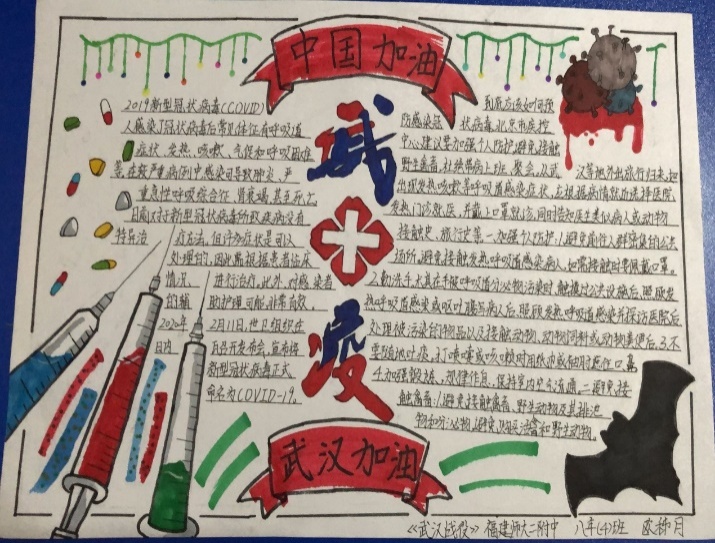 中国加油
2019新型冠状病毒(COVID)
人感染了冠状病毒后常见体征有呼吸道
症状、发热、咳嗽、气促和呼吸困难
等。在较严重病例中感染可导致肺炎、严
重急性呼吸综合征、肾衰竭、甚至死亡
目前对于新型冠状病毒所致疾病没有
特异治疗方法。但许多症状是可以
处理的,因此需根据患者临床
情况进行治疗。此外,对感染者
的辅助护理可能非常有效。
2020年2月11日,世卫组织在
日内瓦召开发布会,宣布将
新型冠状病毒正式
命名为COVID-19。
战
疫
到底应该如何预
防感染冠状病毒,北京市疾控
中心建议要加强个人防护,避免接触
野生禽畜,杜绝带病上班、聚会,从武汉等地外出旅行归来,如
出现发热咳嗽等呼吸道感染症状,应根据病情就近选择医院
发热门诊就医,并戴上口罩就诊,同时告知医生类似病人或动物
接触史、旅行史等。一、加强个人防护:1.避免前往人群密集的公共
场所,避免接触发热呼吸道感染病人,如需接触时要佩戴口罩。
2.勤洗手,尤其在手被呼吸道分泌物污染时、触摸过公共设施后、照顾发
热呼吸道感染或呕吐腹泻病人后、照顾发热呼吸道感染,探访医院后
处理被污染的物品以及接触动物、动物饲料或动物粪便后。3.不
要随地吐痰,打喷嚏或咳嗽时用纸巾或袖肘遮住口、鼻
4.加强锻炼,规律作息,保持室内空气流通。二、避免接
触禽畜:1.避免接触禽畜、野生动物及其排泄
物和分泌物,避免购买活禽和野生动物。
武汉加油
《武汉战役》 福建师大二附中 八年(4)班